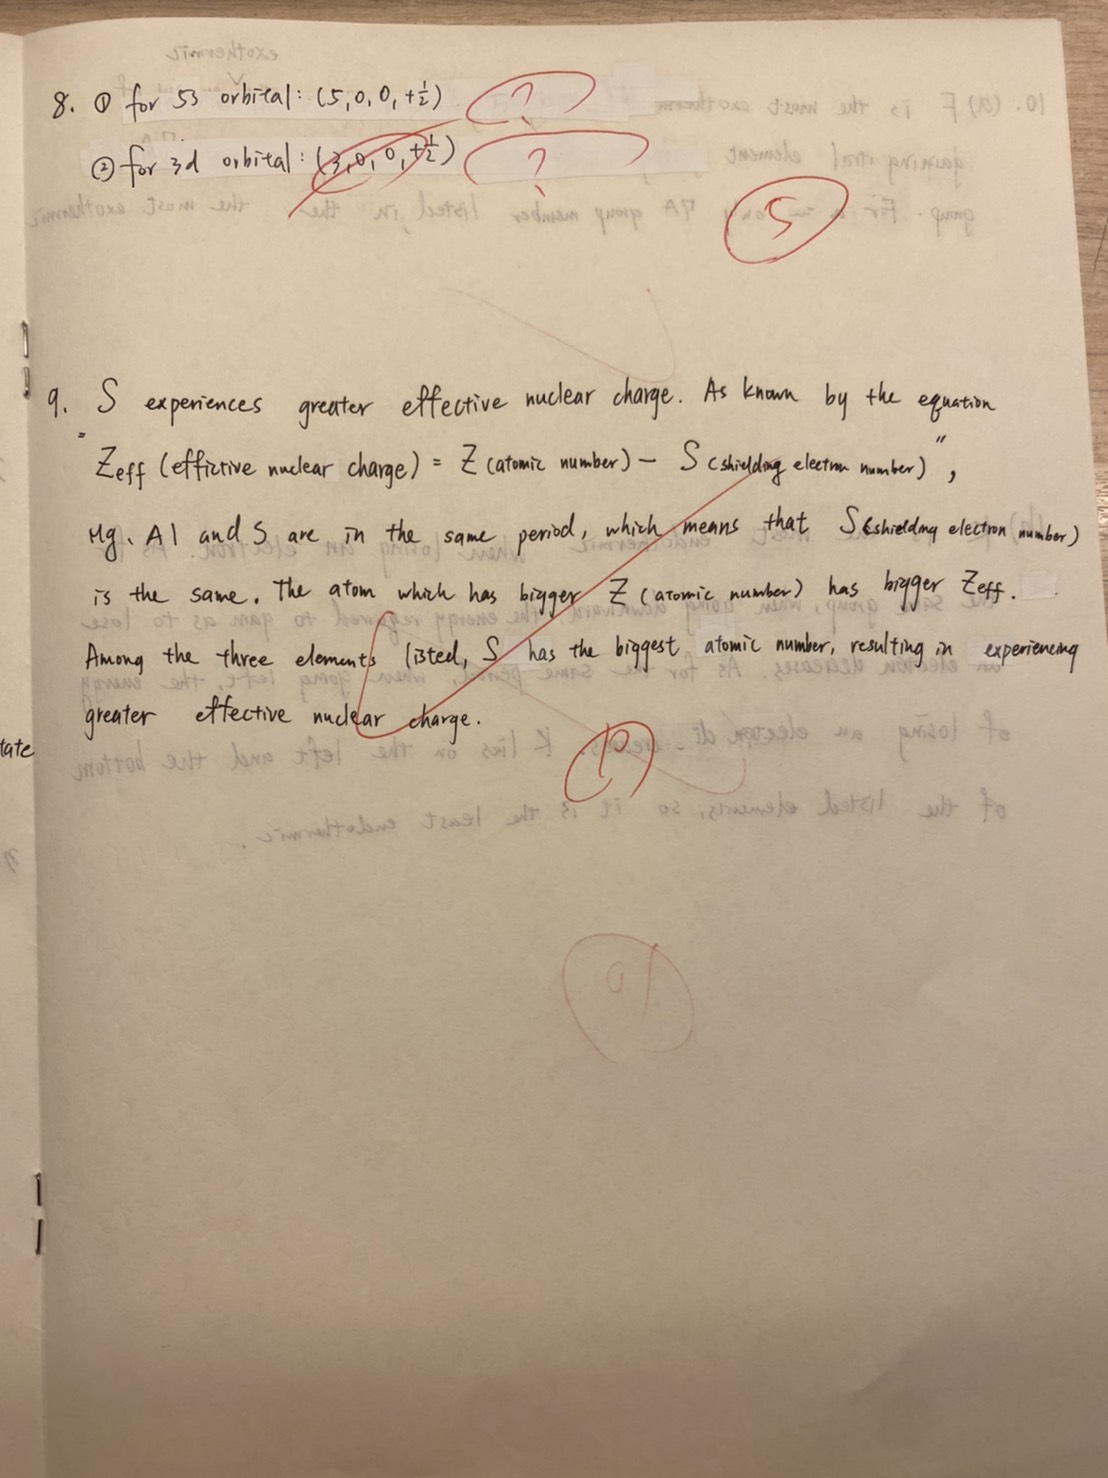 8. ① for 5s orbital: (5,0,0,+½) ?
② for 3d orbital: (3,0,0,+½) ?
5
9. S experiences greater effective nuclear charge. As known by the equation
"Zeff (effictive nuclear charge) = Z (atomic number) – S (shielding electron number)",
Mg、Al and S are in the same period, which means that S (shielding electron number)
is the same. The atom which has bigger Z (atomic number) has bigger Zeff.
Among the three elements listed, S has the biggest atomic number, resulting in experiencing
greater effective nuclear charge.
tate